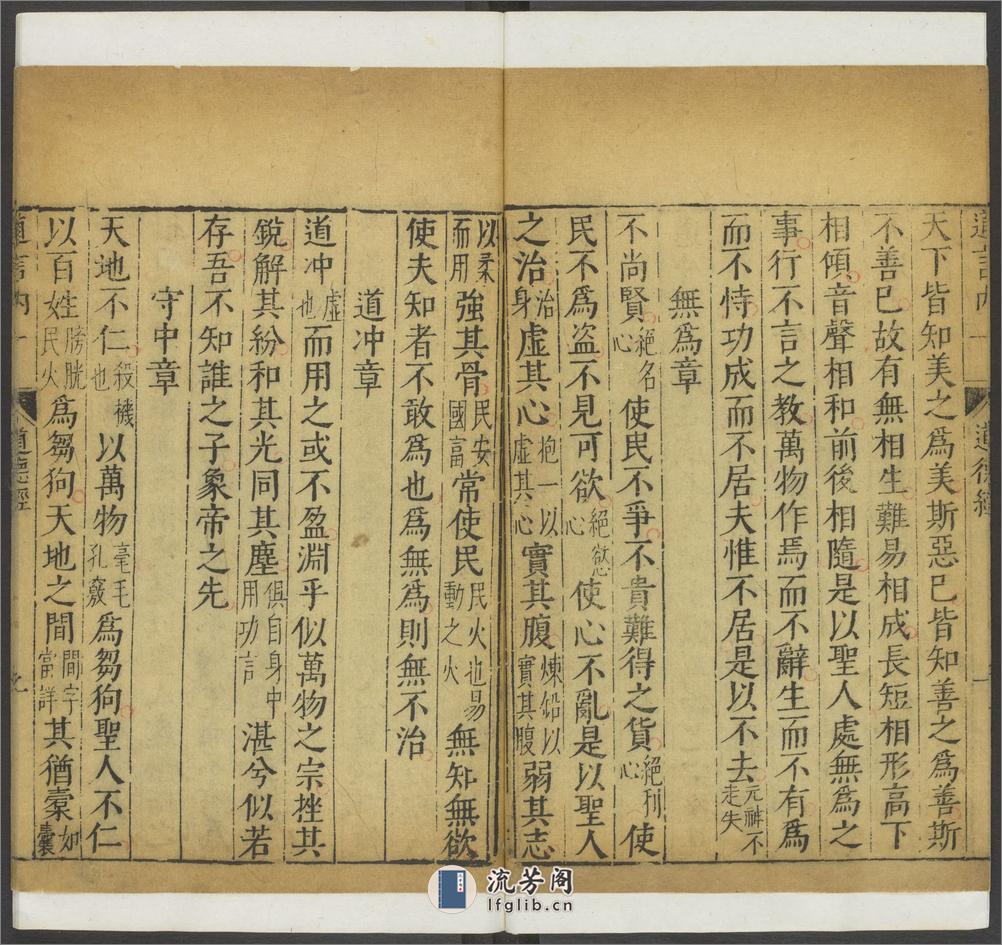 道言内 一 道德經 一
天下皆知美之爲美斯惡已皆知善之爲善斯
不善已故有無相生難易相成長短相形高下
相傾音聲相和前後相隨是以聖人處無爲之
事行不言之教萬物作焉而不辭生而不有爲
而不恃功成而不居夫惟不居是以不去元神不走失
無爲章
不尚賢絕名心使民不爭不貴難得之貨絕利心使
民不爲盜不見可欲絕慾心使心不亂是以聖人
之治治身虛其心抱一以虛其心實其腹煉鉛以實其腹弱其志
以柔而用強其骨民安國富常使民民火也易動之火無知無欲
使夫知者不敢爲也爲無爲則無不治
道冲章
道冲虛也而用之或不盈淵乎似萬物之宗挫其
銳解其紛和其光同其塵俱自身中用功言湛兮似若
存吾不知誰之子象帝之先
守中章
天地不仁殺機也以萬物毫毛孔竅爲芻狗聖人不仁
以百姓膀胱民火爲芻狗天地之間間字當詳其猶橐如囊
道言内 道德經
流芳阁
lfglib.cn